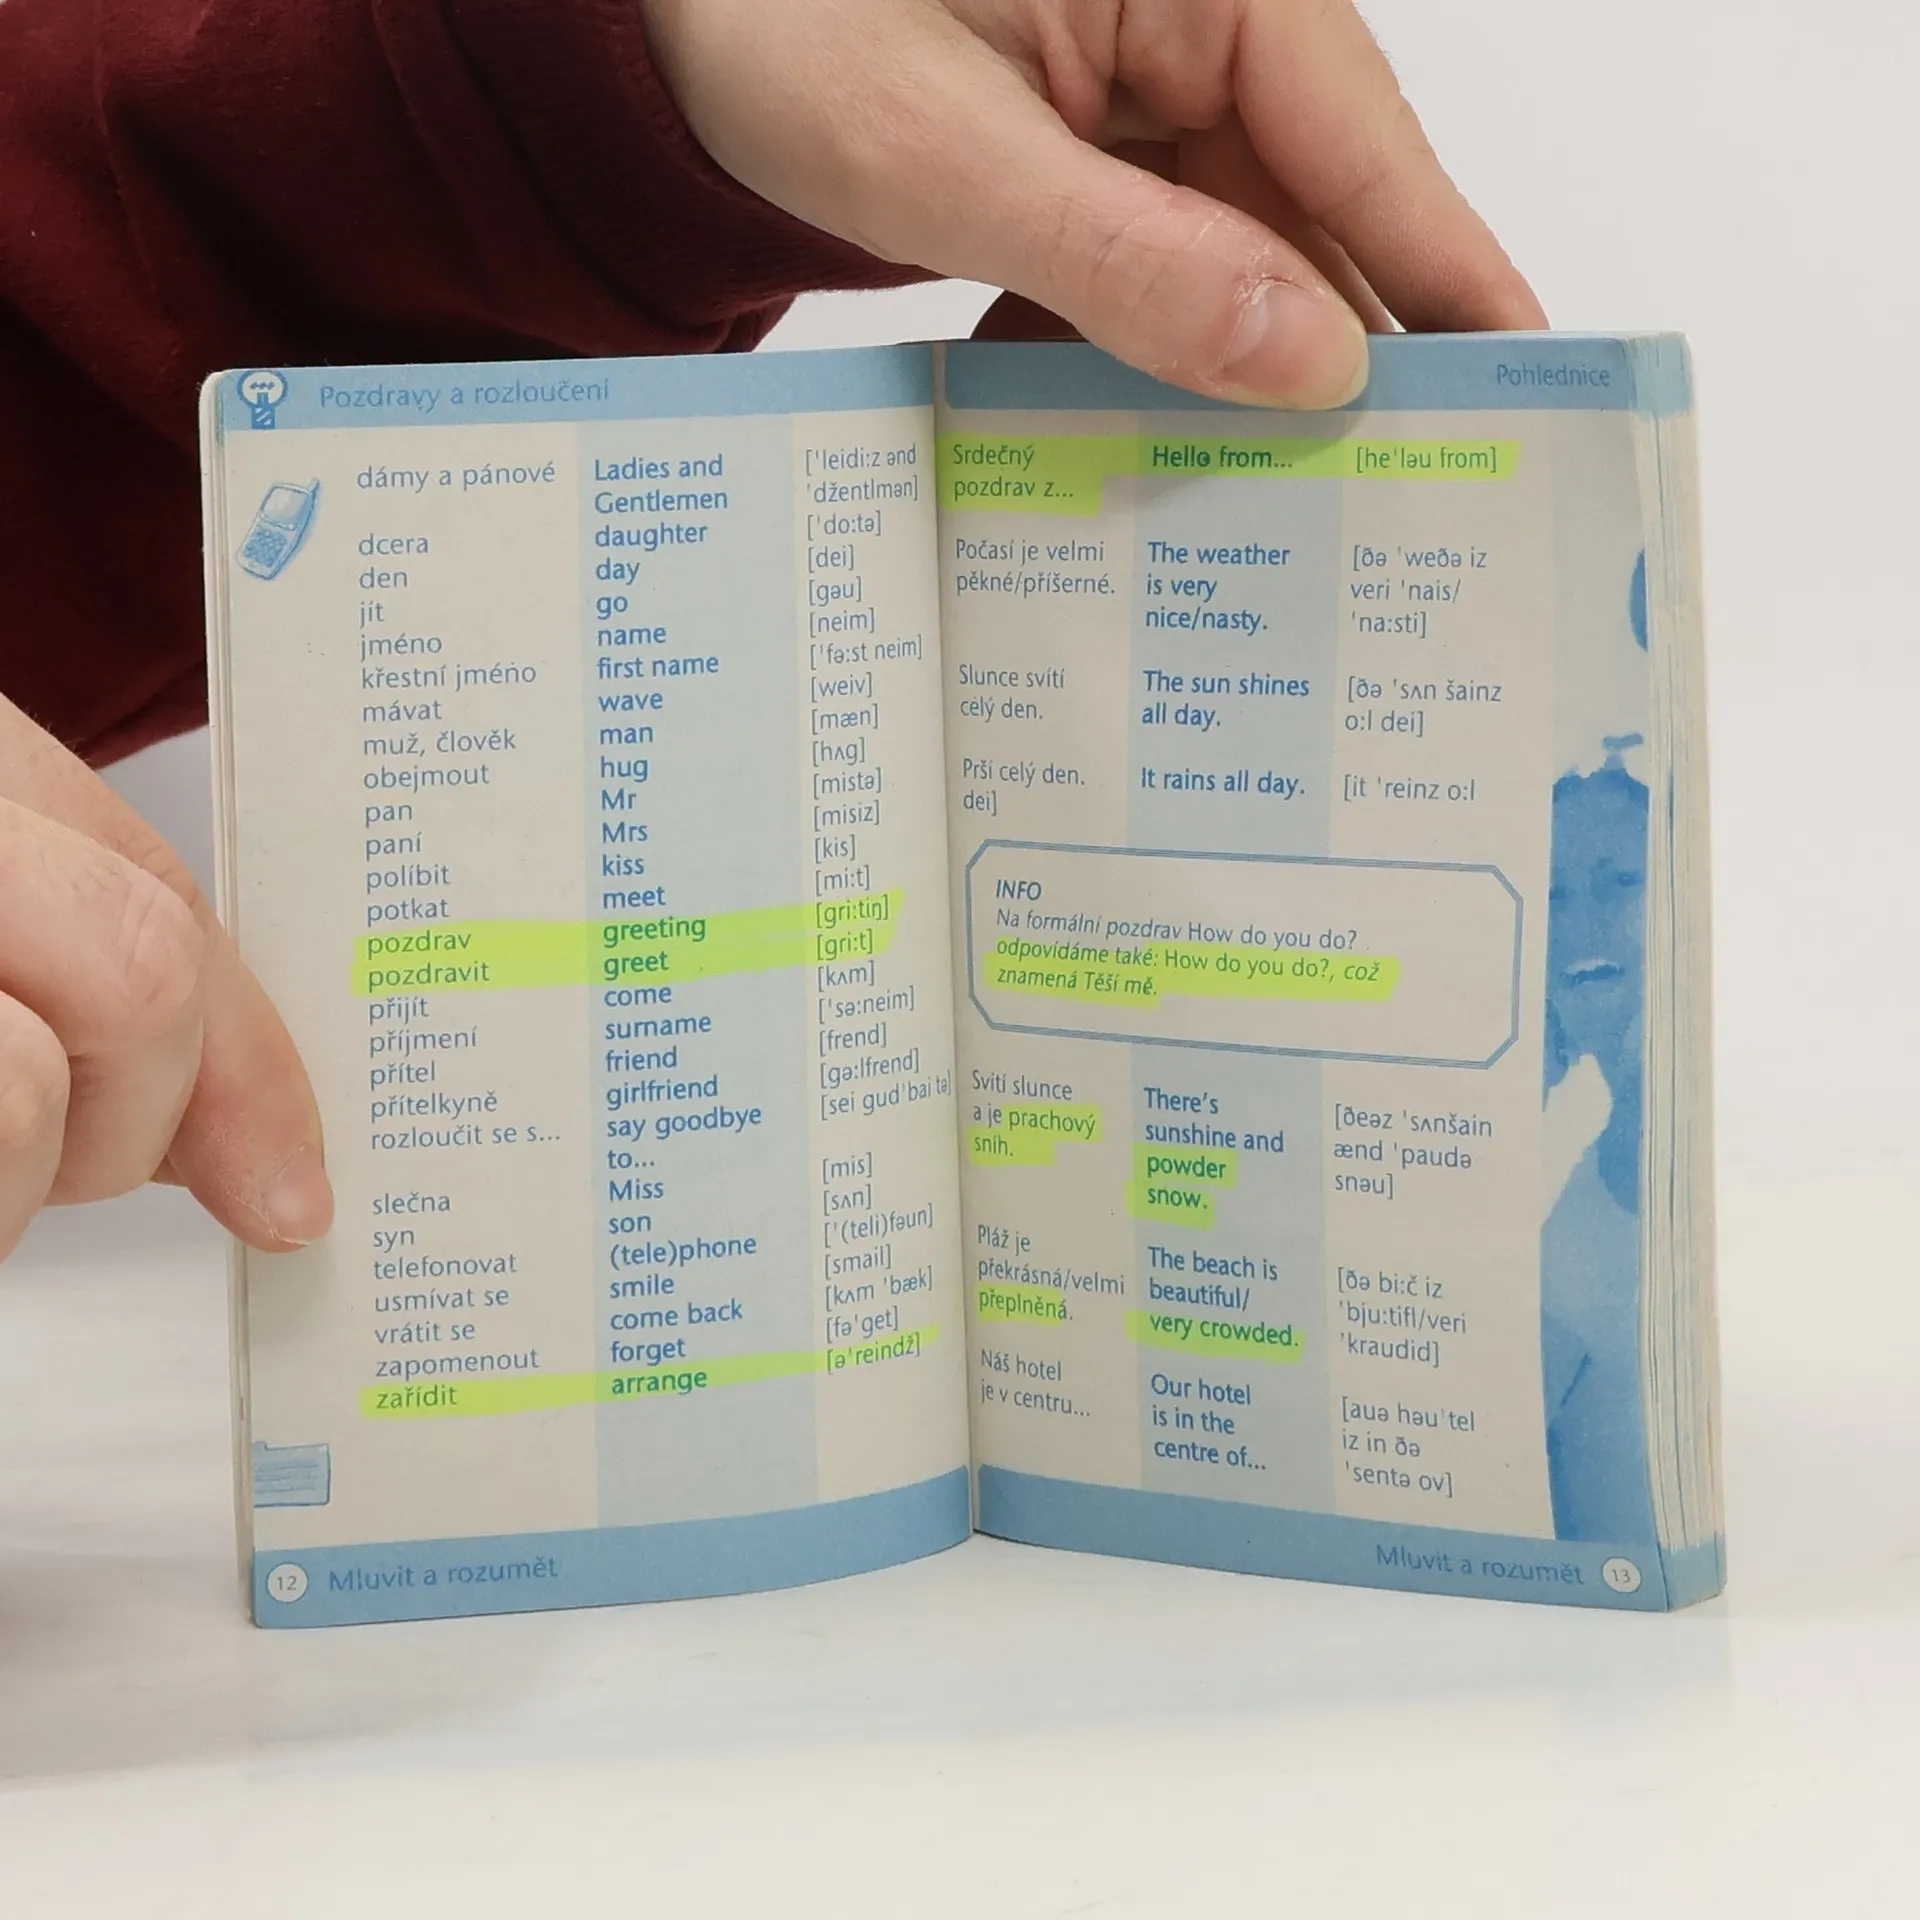 Pozdravy a rozloučení
dámy a pánové Ladies and ['leidi:z ənd
Gentlemen 'džentlmən]
dcera daughter ['do:tə]
den day [dei]
jít go [gəu]
jméno name [neim]
křestní jméno first name ['fə:st neim]
mávat wave [weiv]
muž, člověk man [mæn]
obejmout hug [hʌg]
pan Mr [mistə]
paní Mrs [misiz]
políbit kiss [kis]
potkat meet [mi:t]
pozdrav greeting [gri:tiŋ]
pozdravit greet [gri:t]
přijít come [kʌm]
příjmení surname ['sə:neim]
přítel friend [frend]
přítelkyně girlfriend [gə:lfrend]
rozloučit se s... say goodbye [sei gud'bai tə]
to...
slečna Miss [mis]
syn son [sʌn]
telefonovat (tele)phone ['(teli)fəun]
usmívat se smile [smail]
vrátit se come back [kʌm 'bæk]
zapomenout forget [fə'get]
zařídit arrange [ə'reindž]
12 Mluvit a rozumět
Pohlednice
Srdečný Hello from... [he'ləu from]
pozdrav z...
Počasí je velmi The weather [ðə 'weðə iz
pěkné/příšerné. is very veri 'nais/
nice/nasty. 'na:sti]
Slunce svítí The sun shines [ðə 'sʌn šainz
celý den. all day. o:l dei]
Prší celý den. It rains all day. [it 'reinz o:l
dei]
INFO
Na formální pozdrav How do you do?
odpovídáme také: How do you do?, což
znamená Těší mě.
Svítí slunce There's [ðeəz 'sʌnšain
a je prachový sunshine and ænd 'paudə
sníh. powder snəu]
snow.
Pláž je The beach is [ðə bi:č iz
překrásná/velmi beautiful/ 'bju:tifl/veri
přeplněná. very crowded. 'kraudid]
Náš hotel Our hotel [auə həu'tel
je v centru... is in the iz in ðə
centre of... 'sentə ov]
Mluvit a rozumět 13